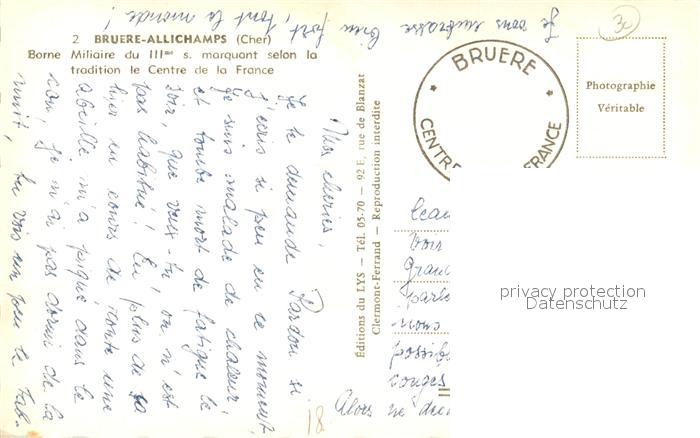 Je vous embrasse bien fort, tout le monde !
30
2 BRUERE-ALLICHAMPS (Cher)
Borne Miliaire du IIIme s. marquant selon la
tradition le Centre de la France
BRUERE
CENTRE FRANCE
Photographie
Véritable
Éditions du LYS — Tél. 05-70 — 92 E, rue de Blanzat
Clermont-Ferrand — Reproduction interdite
Mes chéries,
Je te demande Pardon si
j'écris si peu en ce moment,
je suis malade de chaleur,
et tombe mort de fatigue le
soir, que veux-tu, on n'est
pas habitué ! En plus de sa
hier en cours de route une
abeille m'a piqué dans le
cou, je n'ai pas dormi de la
nuit, tu vois un peu le Tab-
leau
Voir
Grand
parle
nous
possib
conges
Alors ne
18
privacy protection
Datenschutz